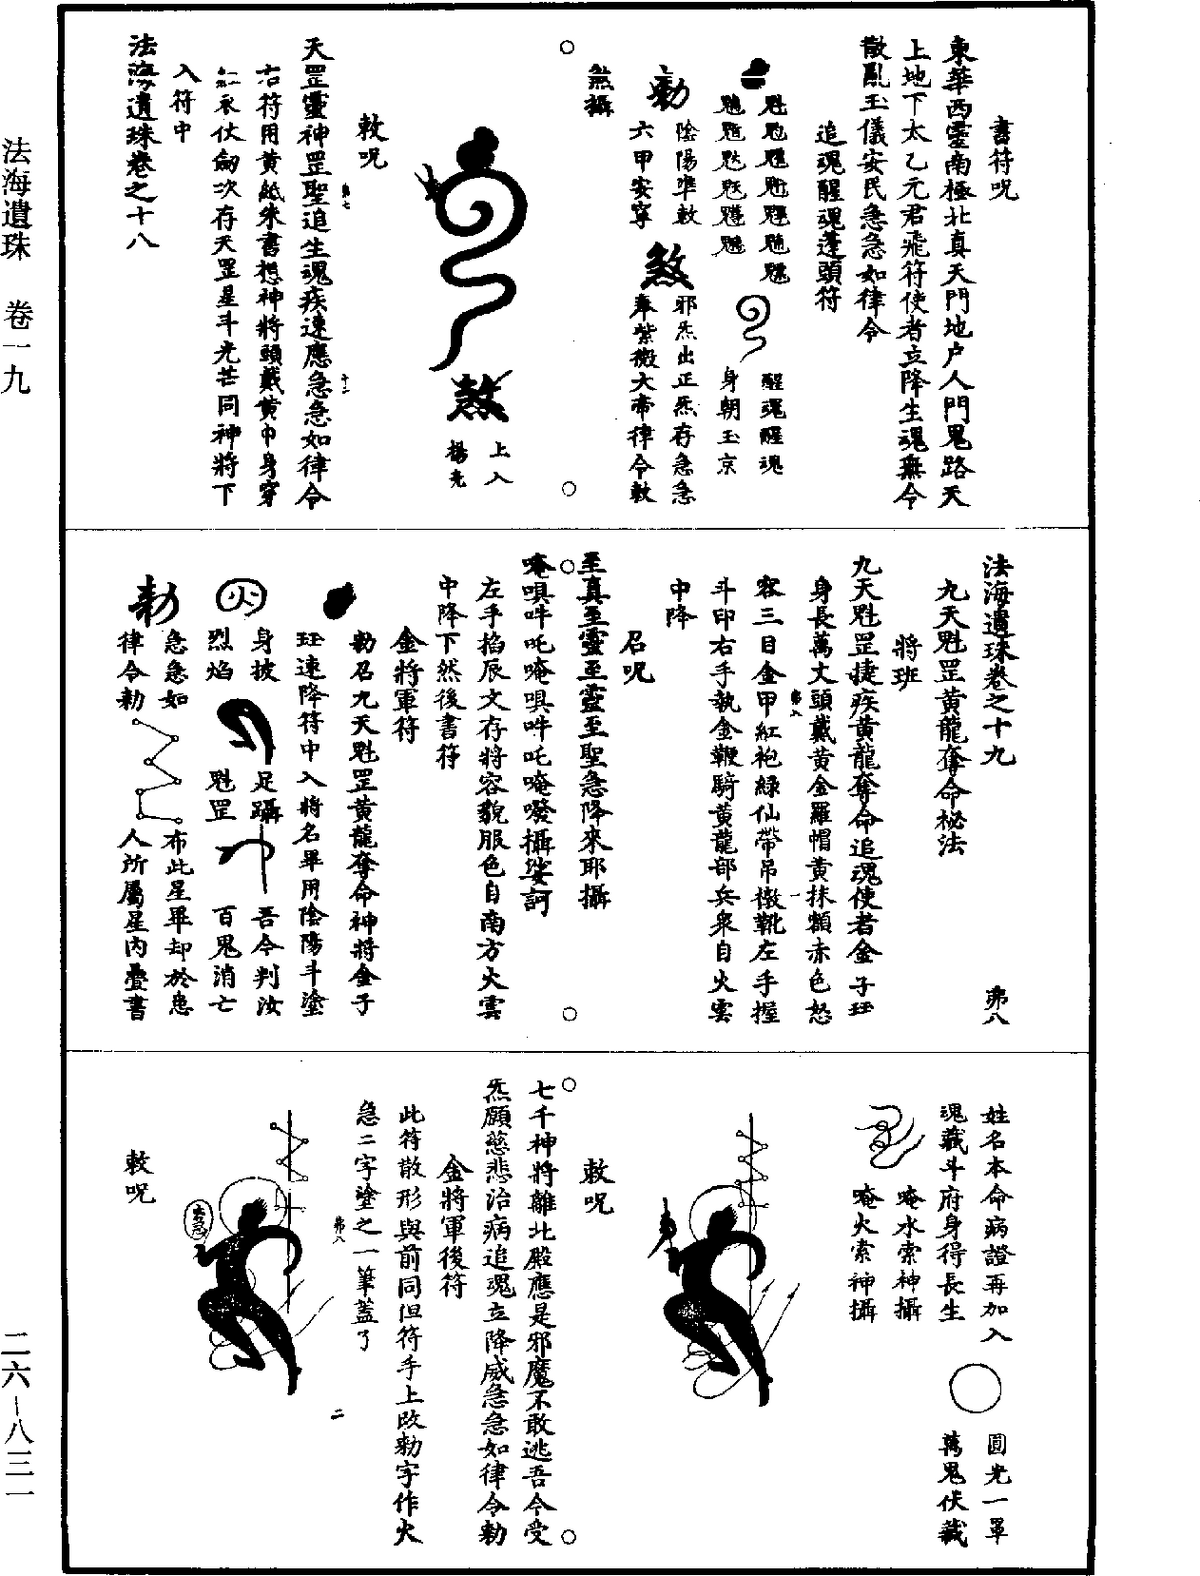 書符呪
東華西靈南極北真天門地户人門鬼路天
上地下太乙元君飛符使者立降生魂無令
散亂玉儀安民急急如律令
追魂醒魂蓬頭符
醒魂醒魂
身朝玉京
勅
陰陽準敕
六甲安寧
煞
邪炁出正炁存急急
奉紫微大帝律令敕
煞攝
煞
上入
楊光
敕呪
天罡靈神罡聖追生魂疾速應急急如律令
右符用黃紙朱書想神將頭戴黃巾身穿
紅衣仗劍次存天罡星斗光芒同神將下
入符中
法海遺珠卷之十八
法海遺珠卷之十九
弗八
九天魁罡黃龍奪命祕法
將班
九天魁罡捷疾黃龍奪命追魂使者金子珏
身長萬丈頭戴黃金羅帽黃抹額赤色怒
容三目金甲紅袍綠仙帶吊橔靴左手握
斗印右手執金鞭騎黃龍部兵衆自火雲
中降
召呪
至真至靈至靈至聖急降來耶攝
唵唄吽吒唵唄吽吒唵癹攝娑訶
左手掐辰文存將容貌服色自南方火雲
中降下然後書符
金將軍符
勅召九天魁罡黃龍奪命神將金子
珏速降符中入將名畢用陰陽斗塗
身披
烈焰
足躡
魁罡
吾今判汝
百鬼消亡
勅
急急如
律令勅
布此星畢却於患
人所屬星內疊書
姓名本命病證再加入
圓光一罩
魂藏斗府身得長生
萬鬼伏藏
唵水索神攝
唵火索神攝
敕呪
七千神將離北殿應是邪魔不敢逃吾今受
炁願慈悲治病追魂立降威急急如律令勅
金將軍後符
此符散形與前同但符手上改勅字作火
急二字塗之一筆蓋了
弗八
二
敕呪
法海遺珠 卷一九
二六–八三一